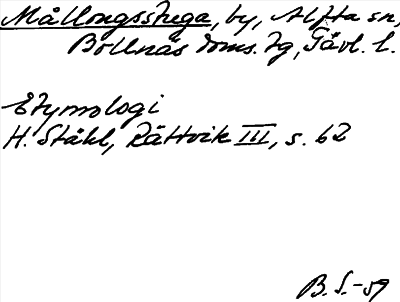 Mållongsstuga, by, Alfta sn,
Bollnäs doms. tg, Gävl. l.
Etymologi
H. Ståhl, Rättvik III, s. 62
B. S. -59